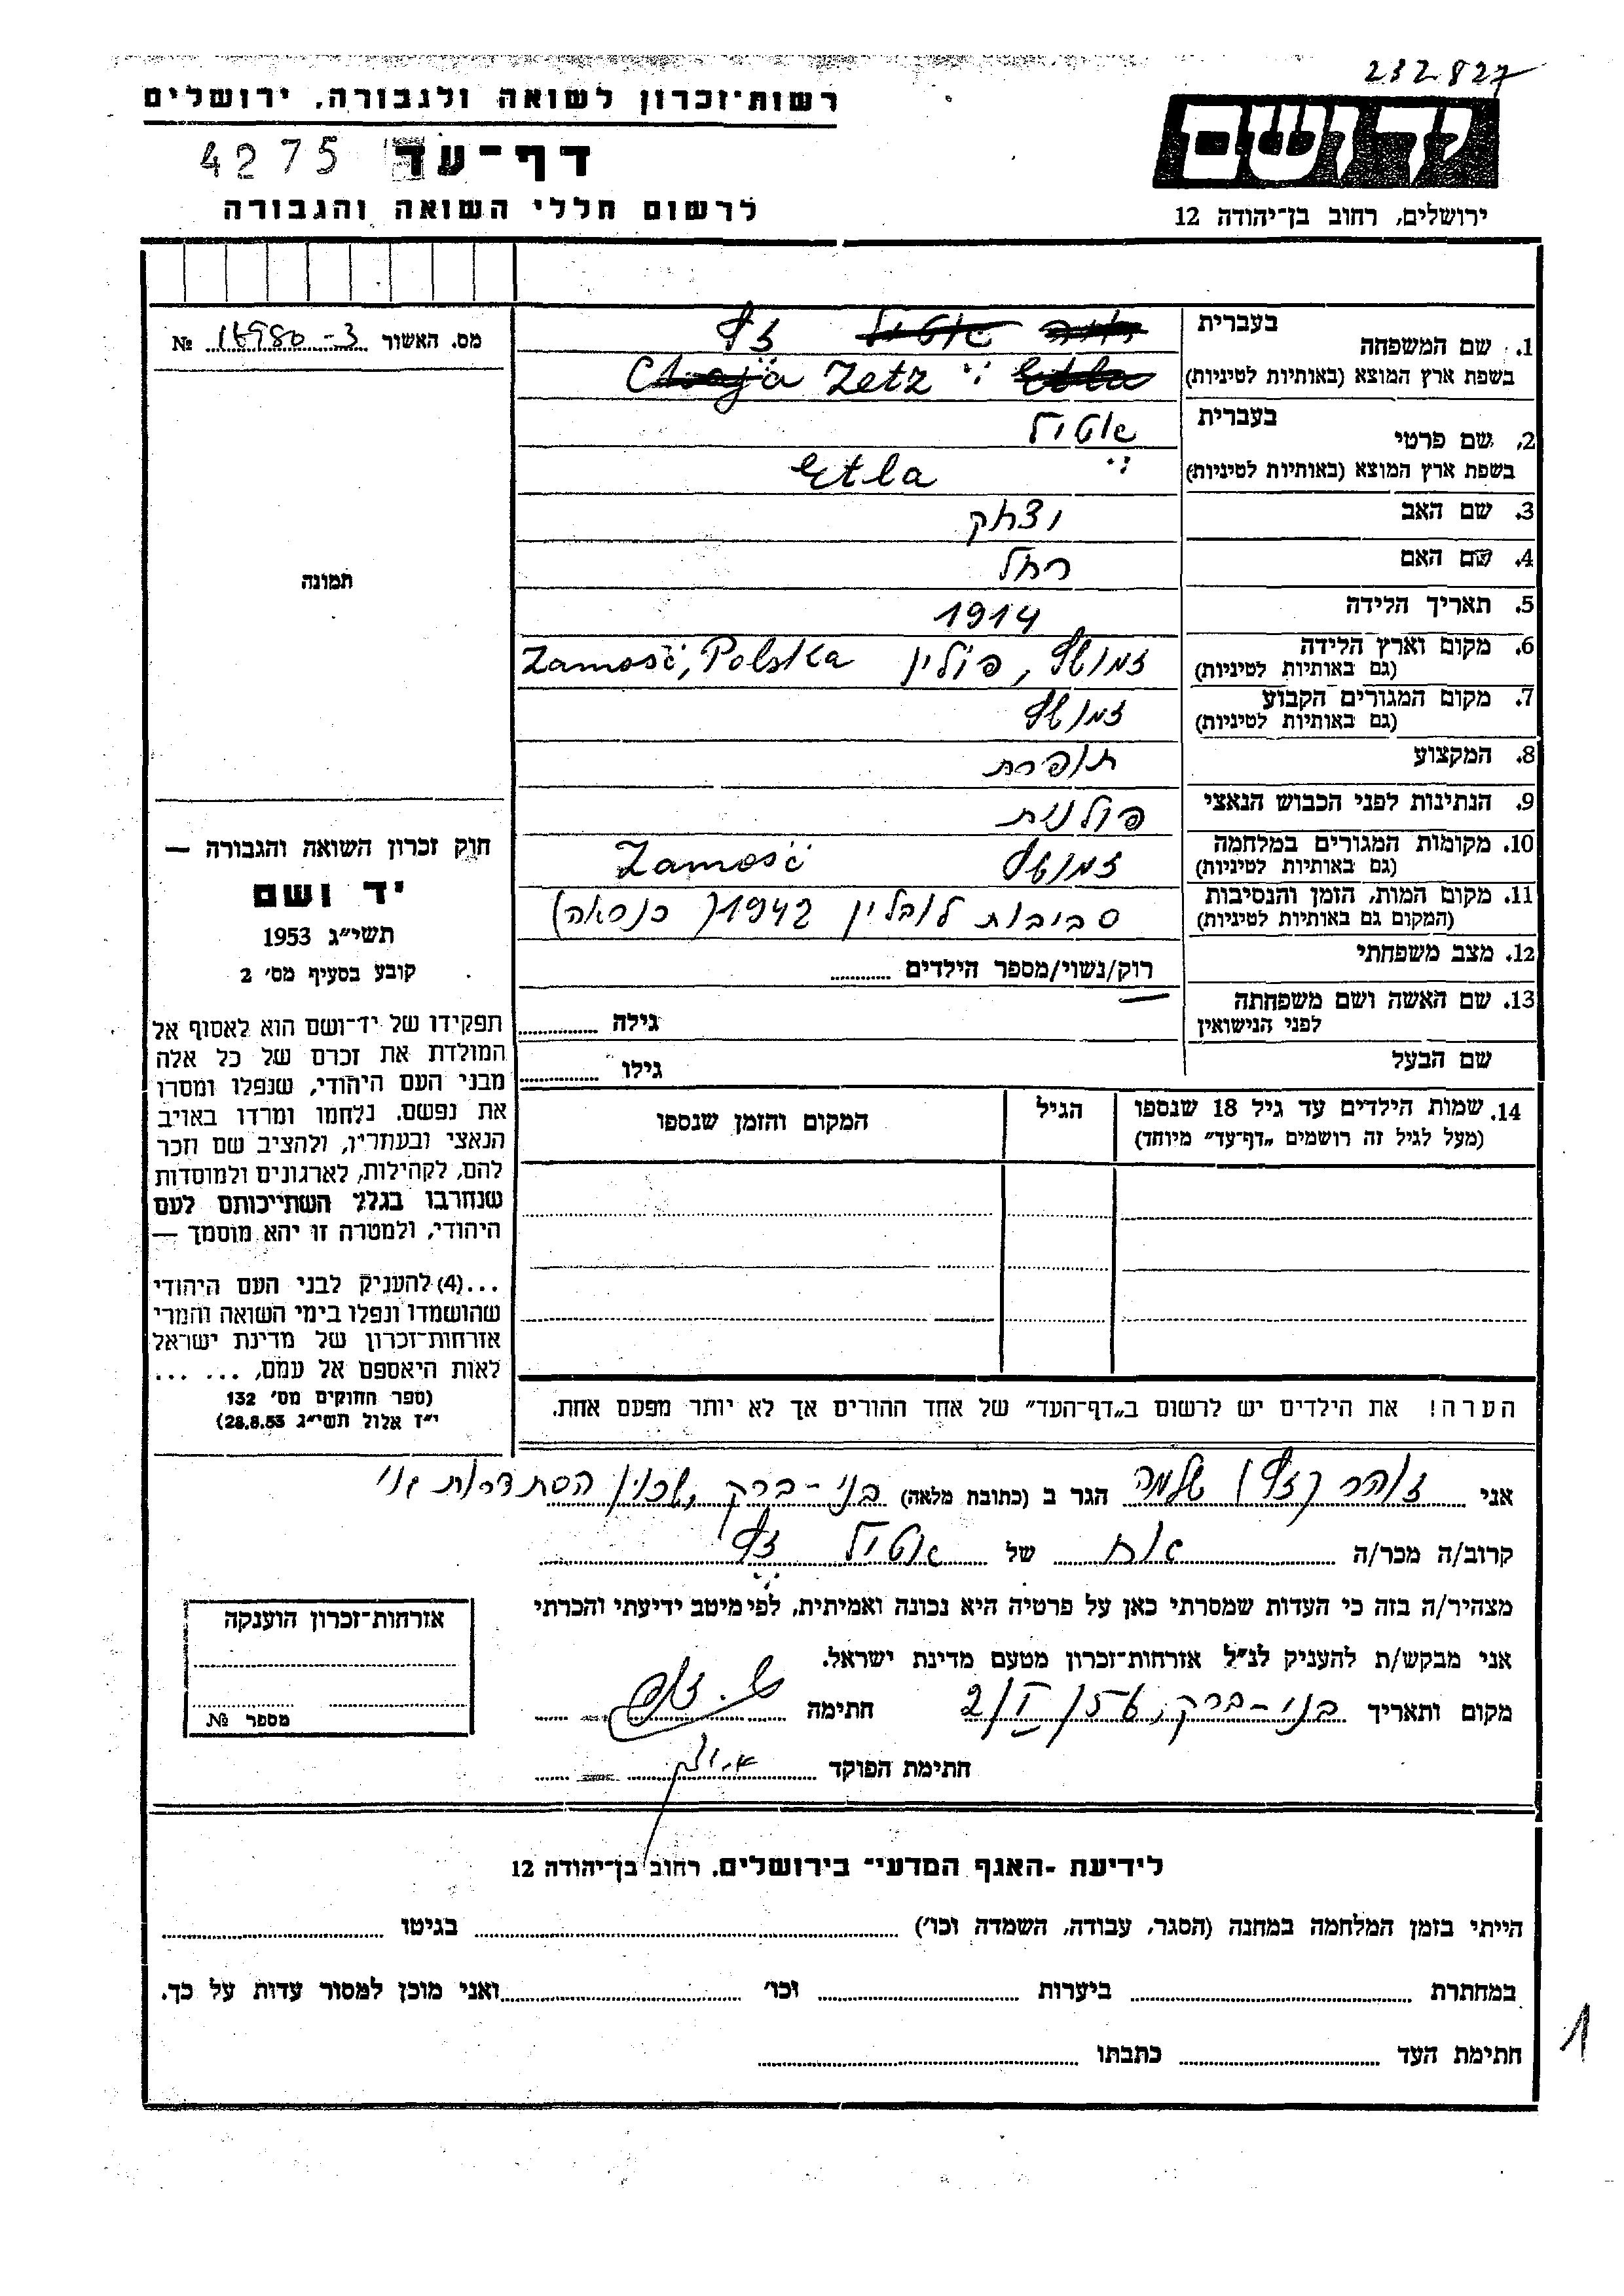 232827
רשות־זכרון לשואה ולגבורה, ירושלים
ידושם
דף־עד 4275
לרשום חללי השואה והגבורה
ירושלים, רחוב בן־יהודה 12
מס. האשור 3- №
1. שם המשפחה
בעברית אטיל זץ
בשפת ארץ המוצא (באותיות לטיניות) Etla יי Zetz Chaja
2. שם פרטי
בעברית אטיל
בשפת ארץ המוצא (באותיות לטיניות) יי Etla
3. שם האב יצחק
4. שם האם רחל
5. תאריך הלידה 1914
6. מקום וארץ הלידה זמושץ, פולין Zamość, Polska
(גם באותיות לטיניות)
7. מקום המגורים הקבוע זמושץ
(גם באותיות לטיניות)
8. המקצוע תופרת
9. הנתינות לפני הכבוש הנאצי פולנית
10. מקומות המגורים במלחמה זמושץ Zamość
(גם באותיות לטיניות)
11. מקום המות, הזמן והנסיבות סביבות לובלין 1942 (כנראה)
(המקום גם באותיות לטיניות)
12. מצב משפחתי רוק/נשוי/מספר הילדים
13. שם האשה ושם משפחתה
לפני הנישואין גילה
שם הבעל גילו
14. שמות הילדים עד גיל 18 שנספו הגיל המקום והזמן שנספו
(מעל לגיל זה רושמים „דף־עד" מיוחד)
תמונה
חוק זכרון השואה והגבורה —
יד ושם
תשי״ג 1953
קובע בסעיף מס׳ 2
תפקידו של יד־ושם הוא לאסוף אל
המולדת את זכרם של כל אלה
מבני העם היהודי, שנפלו ומסרו
את נפשם, נלחמו ומרדו באויב
הנאצי ובעוזריו, ולהציב שם וזכר
להם, לקהילות, לארגונים ולמוסדות
שנחרבו בגלל השתייכותם לעם
היהודי, ולמטרה זו יהא מוסמך —
...(4) להעניק לבני העם היהודי
שהושמדו ונפלו בימי השואה והמרי
אזרחות־זכרון של מדינת ישראל
לאות היאספם אל עמם, ... ...
(ספר החוקים מס׳ 132
י״ז אלול תשי״ג 28.8.53)
הערה! את הילדים יש לרשום ב„דף־העד" של אחד ההורים אך לא יותר מפעם אחת.
אני זוהר (זץ) שלמה הגר ב (כתובת מלאה) בני-ברק, שכון הסתדרות
קרוב/ה מכר/ה אח של אטיל זץ
מצהיר/ה בזה כי העדות שמסרתי כאן על פרטיה היא נכונה ואמיתית, לפי מיטב ידיעתי והכרתי
אני מבקש/ת להעניק לנ״ל אזרחות־זכרון מטעם מדינת ישראל.
מקום ותאריך בני-ברק, חתימה
חתימת הפוקד
אזרחות־זכרון הוענקה
מספר №
לידיעת ־האגף המדעי־ בירושלים, רחוב בן־יהודה 12
הייתי בזמן המלחמה במחנה (הסגר, עבודה, השמדה וכו׳) בגיטו
במחתרת ביערות וכו׳ ואני מוכן למסור עדות על כך.
חתימת העד כתבתו
1